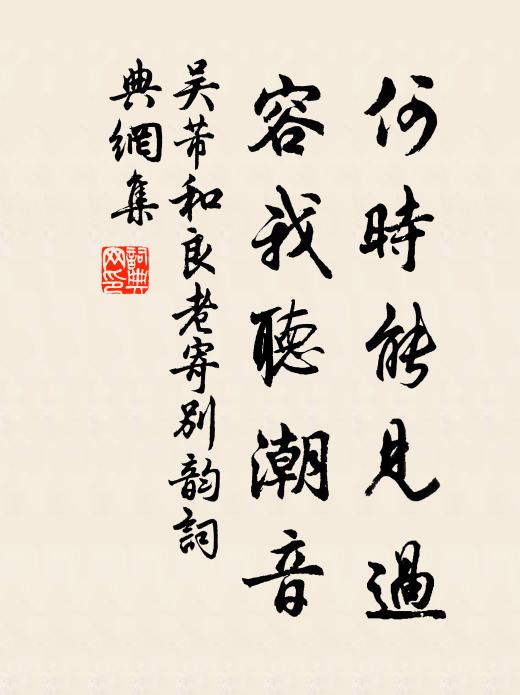 何時能見過
容我聽潮音
吳芾和良老寄別韵詞
典網集
詞典
网印